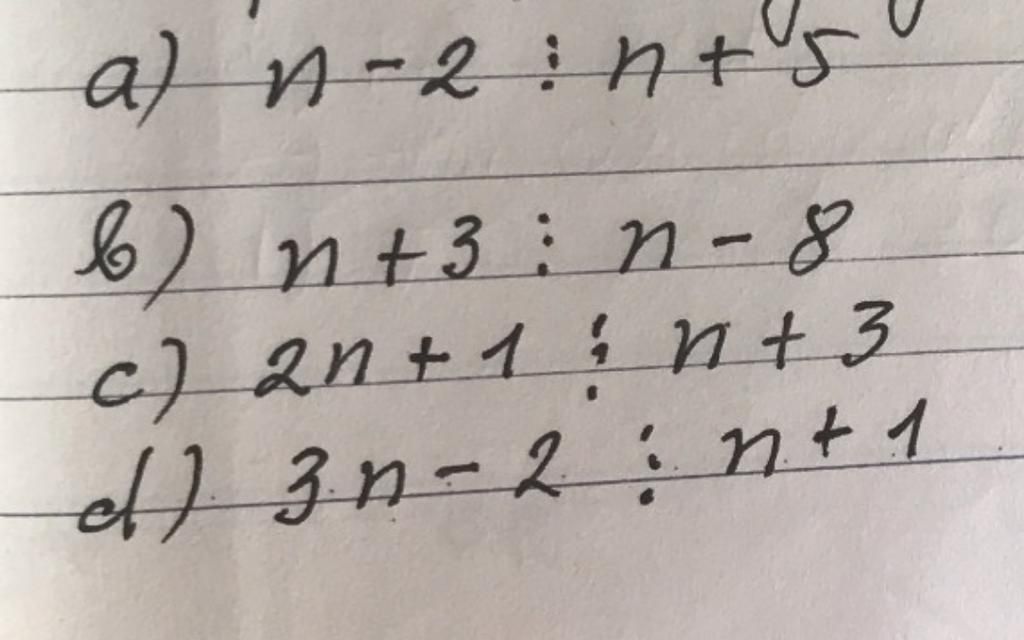 a) n - 2 ⋮ n + 5
b) n + 3 ⋮ n - 8
c) 2n + 1 ⋮ n + 3
d) 3n - 2 ⋮ n + 1